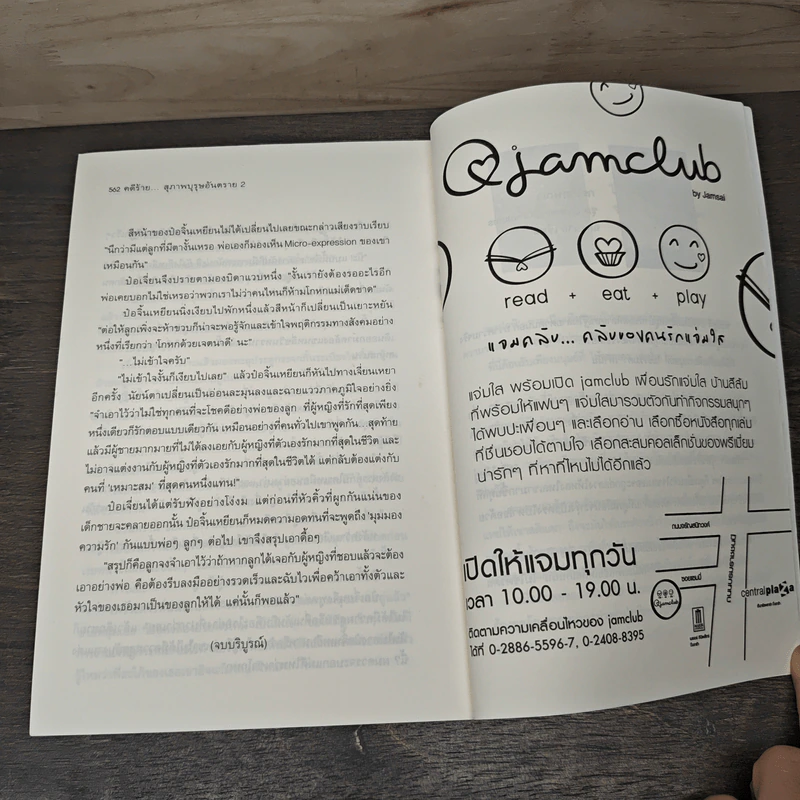 562 คดีร้าย... สุภาพบุรุษอันตราย 2
สีหน้าของป๋อจิ้นเหยียนไม่ได้เปลี่ยนไปเลยขณะกล่าวเสียงราบเรียบ
"นึกว่ามีแต่ลูกที่มีตางั้นเหรอ พ่อเองก็มองเห็น Micro-expression ของเขา
เหมือนกัน"
ป๋อเจี่ยนจึงปรายตามองบิดาแวบหนึ่ง "งั้นเรายังต้องรออะไรอีก
พ่อเคยบอกไม่ใช่เหรอว่าพวกเราไม่ว่าคนไหนก็ห้ามโกหกแม่เด็ดขาด"
ป๋อจิ้นเหยียนนิ่งเงียบไปพักหนึ่งแล้วสีหน้าก็เปลี่ยนเป็นเยาะหยัน
"ต่อให้ลูกเพิ่งจะห้าขวบก็น่าจะพอรู้จักและเข้าใจพฤติกรรมทางสังคมอย่าง
หนึ่งที่เรียกว่า 'โกหกด้วยเจตนาดี' นะ"
"...ไม่เข้าใจครับ"
"ไม่เข้าใจงั้นก็เงียบไปเลย" แล้วป๋อจิ้นเหยียนก็หันไปทางเจี่ยนเหยา
อีกครั้ง นัยน์ตาเปลี่ยนเป็นอ่อนละมุนลงและฉายแววภาคภูมิใจอย่างยิ่ง
"จำเอาไว้ว่าไม่ใช่ทุกคนที่จะโชคดีอย่างพ่อของลูก ที่ผู้หญิงที่รักที่สุดเพียง
หนึ่งเดียวก็รักตอบแบบเดียวกัน เหมือนอย่างที่คนทั่วไปเขาพูดกัน...สุดท้าย
แล้วมีผู้ชายมากมายที่ไม่ได้ลงเอยกับผู้หญิงที่ตัวเองรักมากที่สุดในชีวิต และ
ไม่อาจแต่งงานกับผู้หญิงที่ตัวเองรักมากที่สุดในชีวิตได้ แต่กลับต้องแต่งกับ
คนที่ 'เหมาะสม' ที่สุดคนหนึ่งแทน!"
ป๋อเจี่ยนได้แต่รับฟังอย่างโง่งม แต่ก่อนที่หัวคิ้วที่ผูกกันแน่นของ
เด็กชายจะคลายออกนั้น ป๋อจิ้นเหยียนก็หมดความอดทนที่จะพูดถึง 'มุมมอง
ความรัก' กันแบบพ่อๆ ลูกๆ ต่อไป เขาจึงสรุปเอาดื้อๆ
"สรุปก็คือลูกจงจำเอาไว้ว่าถ้าหากลูกได้เจอกับผู้หญิงที่ชอบแล้วจะต้อง
เอาอย่างพ่อ คือต้องรีบลงมืออย่างรวดเร็วและฉับไวเพื่อคว้าเอาทั้งตัวและ
หัวใจของเธอมาเป็นของลูกให้ได้ แค่นั้นก็พอแล้ว"
(จบบริบูรณ์)
jamclub
by Jamsai
read + eat + play
แจมคลับ... คลับของคนรักแจ่มใส
แจ่มใส พร้อมเปิด jamclub เพื่อนรักแจ่มใส บ้านสีส้ม
ที่พร้อมให้แฟนๆ แจ่มใสมารวมตัวกันทำกิจกรรมสนุกๆ
ได้พบปะเพื่อนๆ และเลือกอ่าน เลือกซื้อหนังสือทุกเล่ม
ที่ชื่นชอบได้ตามใจ เลือกสะสมคอลเล็กชั่นของพรีเมี่ยม
น่ารักๆ ที่หาที่ไหนไม่ได้อีกแล้ว
ถนนจรัญสนิทวงศ์
เปิดให้แจมทุกวัน
เวลา 10.00 - 19.00 น.
ซอยแซมมี่
jamclub
ถนนบรมราชชนนี
centralplaza
ติดตามความเคลื่อนไหวของ jamclub
ได้ที่ 0-2886-5596-7, 0-2408-8395